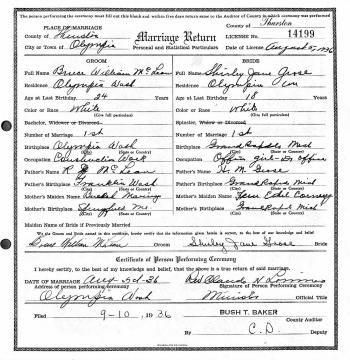 The person performing ceremony must fill out this blank and within five days return same to the Auditor of County in which ceremony was performed
PLACE OF MARRIAGE
County of Thurston
City or Town of Olympia
Marriage Return
Personal and Statistical Particulars
County of Thurston
LICENSE NO. 14199
Date of License August 5, 1936
GROOM
Full Name Bruce William McLean
Residence Olympia Wash
Age at Last Birthday 24 Years
Color or Race White
Bachelor, Widower or Divorced
Number of Marriage 1st
Birthplace Olympia Wash
Occupation Construction Work
Father's Name McLean
Father's Birthplace Franklin Wash
Mother's Maiden Name
Mother's Birthplace
BRIDE
Full Name Shirly Jane Grose
Residence Olympia
Age at Last Birthday 18 Years
Color or Race White
Spinster, Widow or Divorced
Number of Marriage 1st
Birthplace Grand Rapids Mich
Occupation Office girl
Father's Name H. M. Grose
Father's Birthplace Grand Rapids Mich
Mother's Maiden Name Fern Ethel
Mother's Birthplace Grand Rapids Mich
Name of Bride if Previously Married
We the Groom and Bride named in this Certificate, hereby certify that the information given herein is correct, to the best of our knowledge and belief.
Bruce William McLean Groom
Shirley Jane Grose Bride
Certificate of Person Performing Ceremony
I hereby certify, to the best of my knowledge and belief, that the above is a true return of said marriage.
DATE OF MARRIAGE Aug
Signature of Person Performing Ceremony
Olympia Wash
Minister Official Title
Filed 9-10, 1936
BUSH T. BAKER
County Auditor
By C. D.